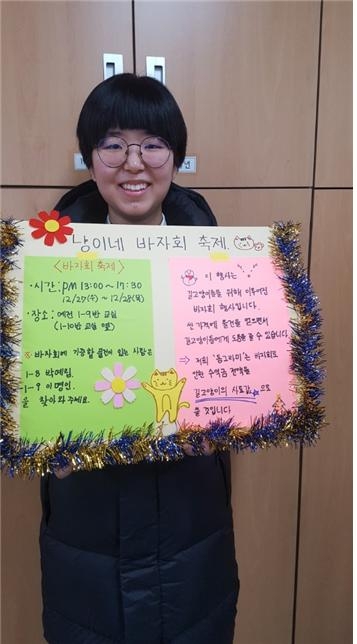 냥이네 바자회 축제
<바자회 축제>
·시간: PM 13:00~17:30
12/27(수)~12/28(목)
·장소: 예전 1-9반 교실
(1-10반 교실 옆)
※ 바자회에 기증할 물건이 있는 사람은
1-8 박예림,
1-9 이명인
을 찾아와주세요.
이 행사는
길고양이들을 위해 이루어진
바자회 행사입니다.
싼 가격에 물건을 얻으면서
길고양이들에게 도움을 줄 수 있습니다
→ 저희 "동그라미"는 바자회로
인한 수익금 전액을
길고양이의 사료값으로
쓸 것입니다